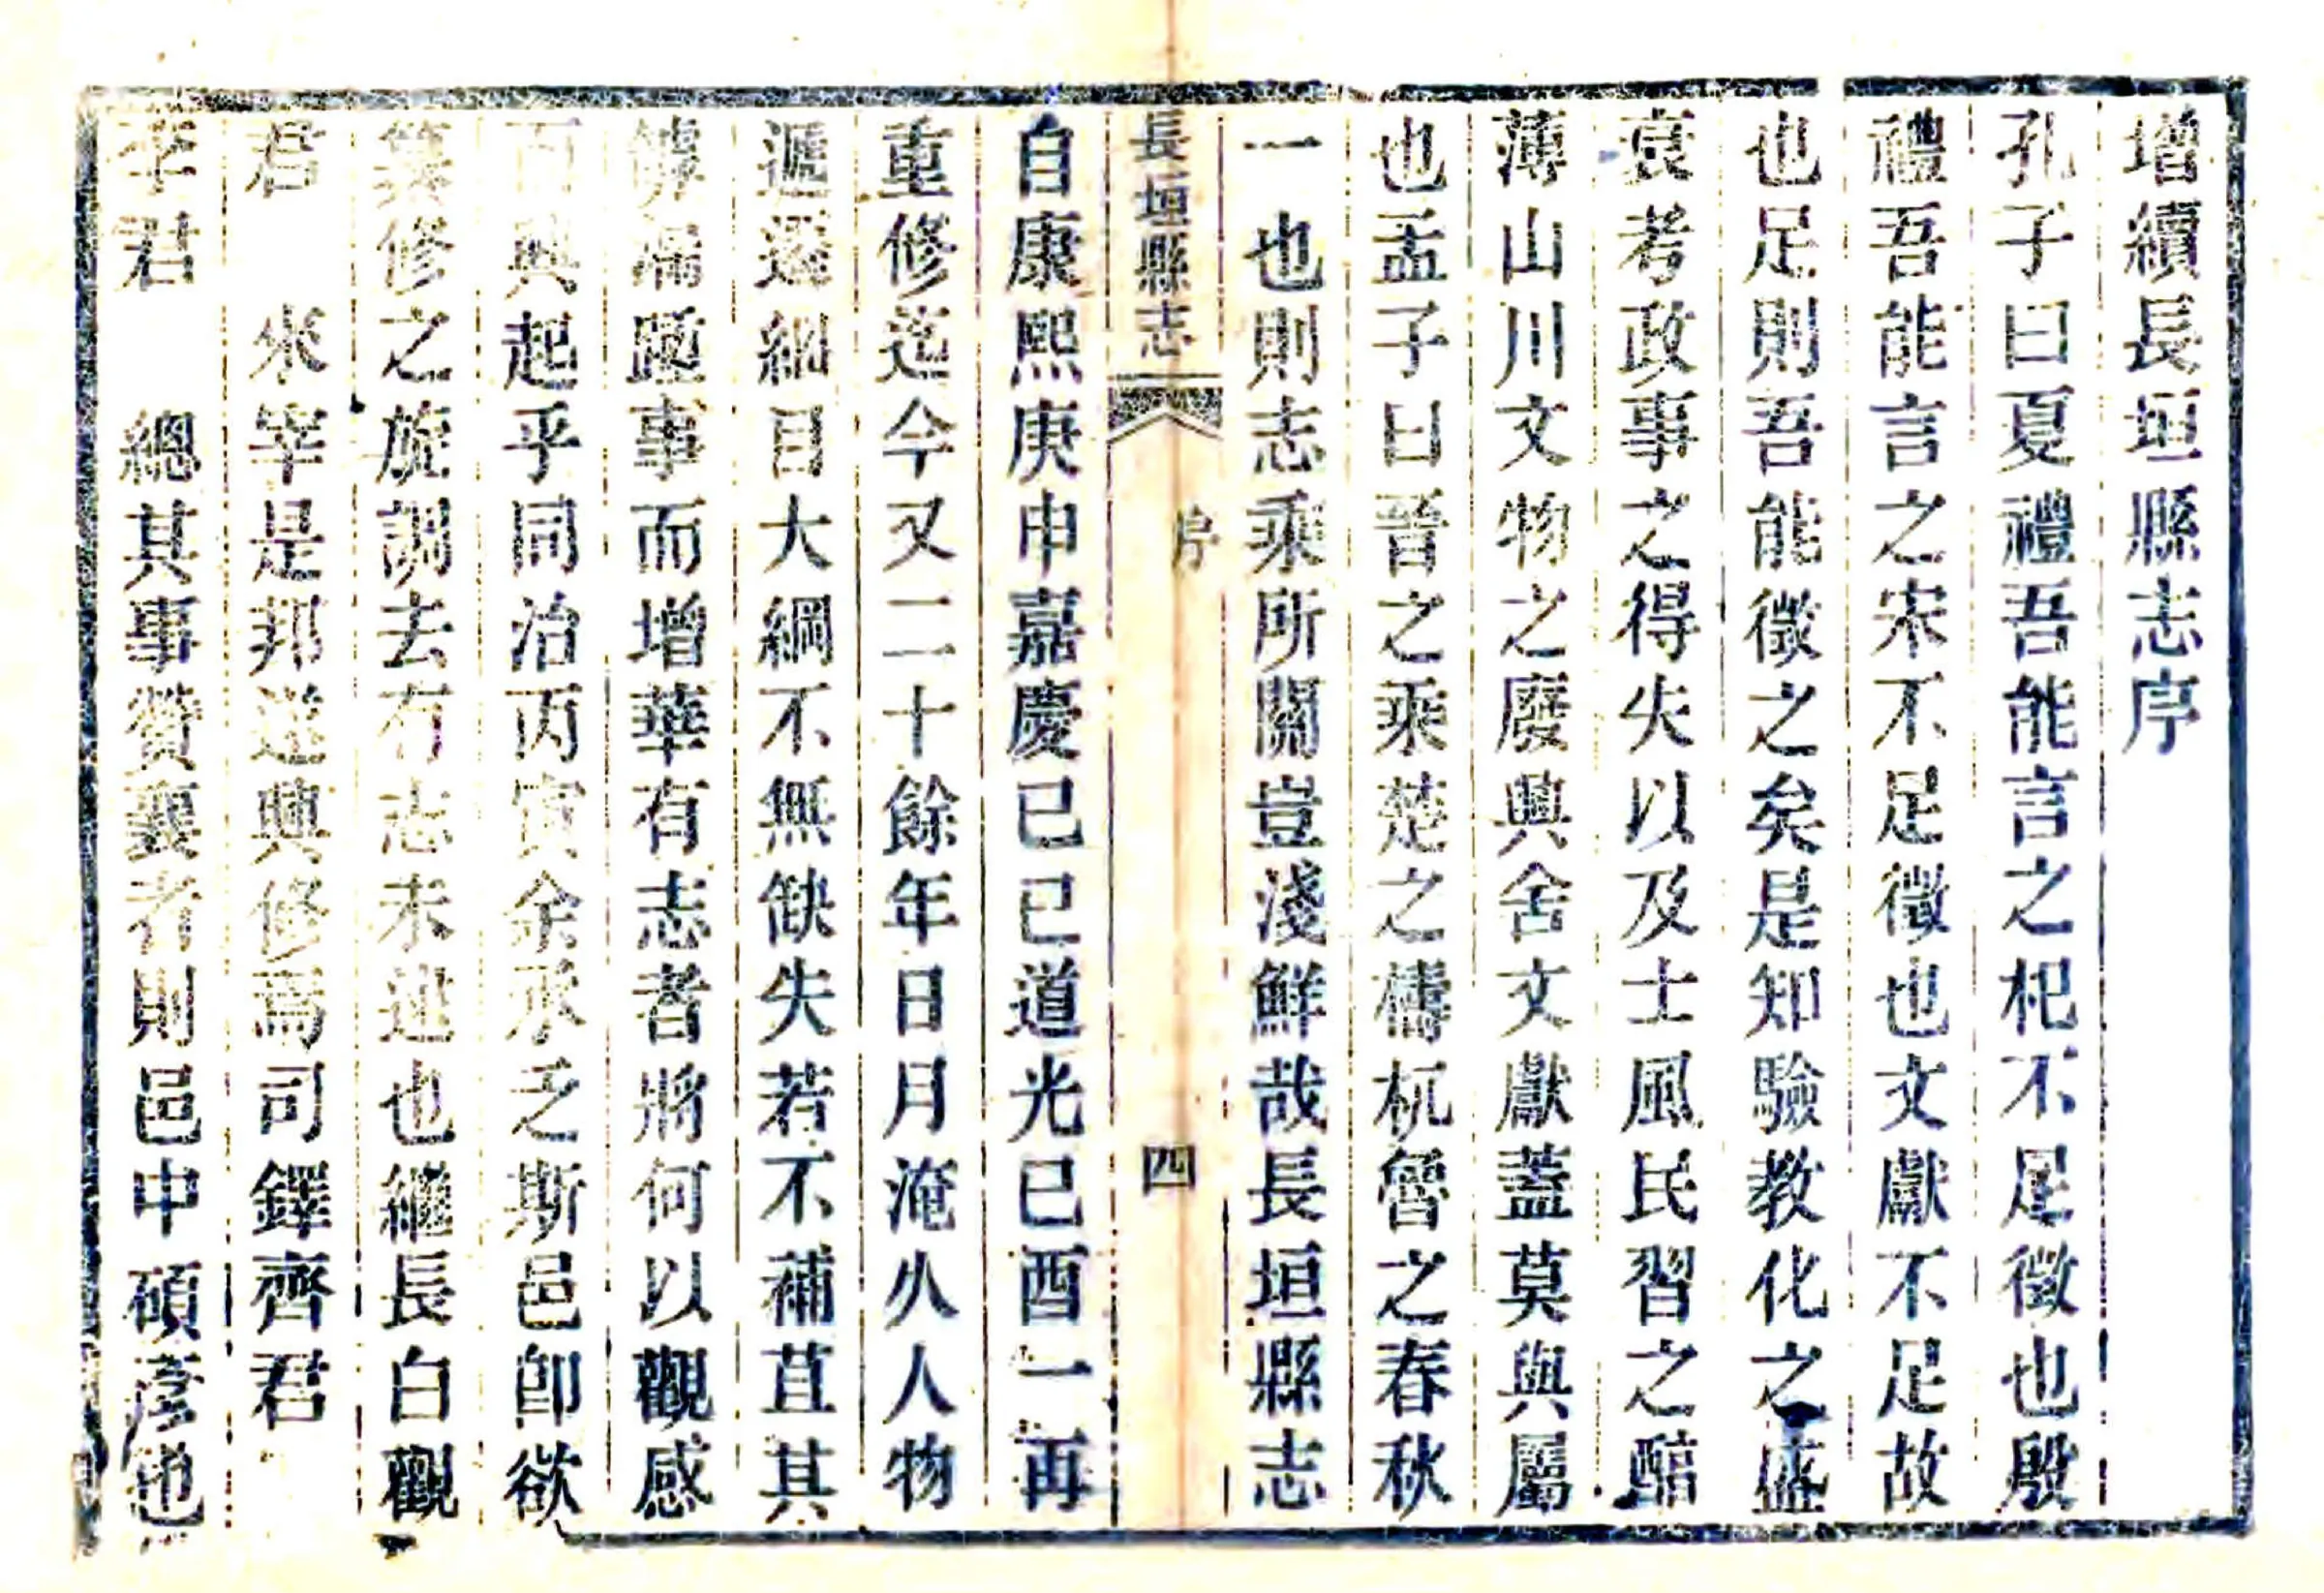 增續長垣縣志序
孔子曰夏禮吾能言之杞不足徵也殷
禮吾能言之宋不足徵也文獻不足故
也足則吾能徵之矣是知驗教化之盛
衰考政事之得失以及士風民習之醕
薄山川文物之廢興舍文獻蓋莫與屬
也孟子曰晉之乘楚之檮杌魯之春秋
一也則志乘所關豈淺鮮哉長垣縣志
長垣縣志
序
四
自康熙庚申嘉慶己巳道光己酉一再
重修迄今又二十餘年日月淹久人物
遞遷細目大綱不無缺失若不補苴其
罅漏踵事而增華有志者將何以觀感
而興起乎同治丙寅余承乏斯邑卽欲
纂修之旋調去有志未逮也繼長白觀
君 來宰是邦遂興修焉司鐸齊君
李君 總其事贊襄者則邑中碩彥也